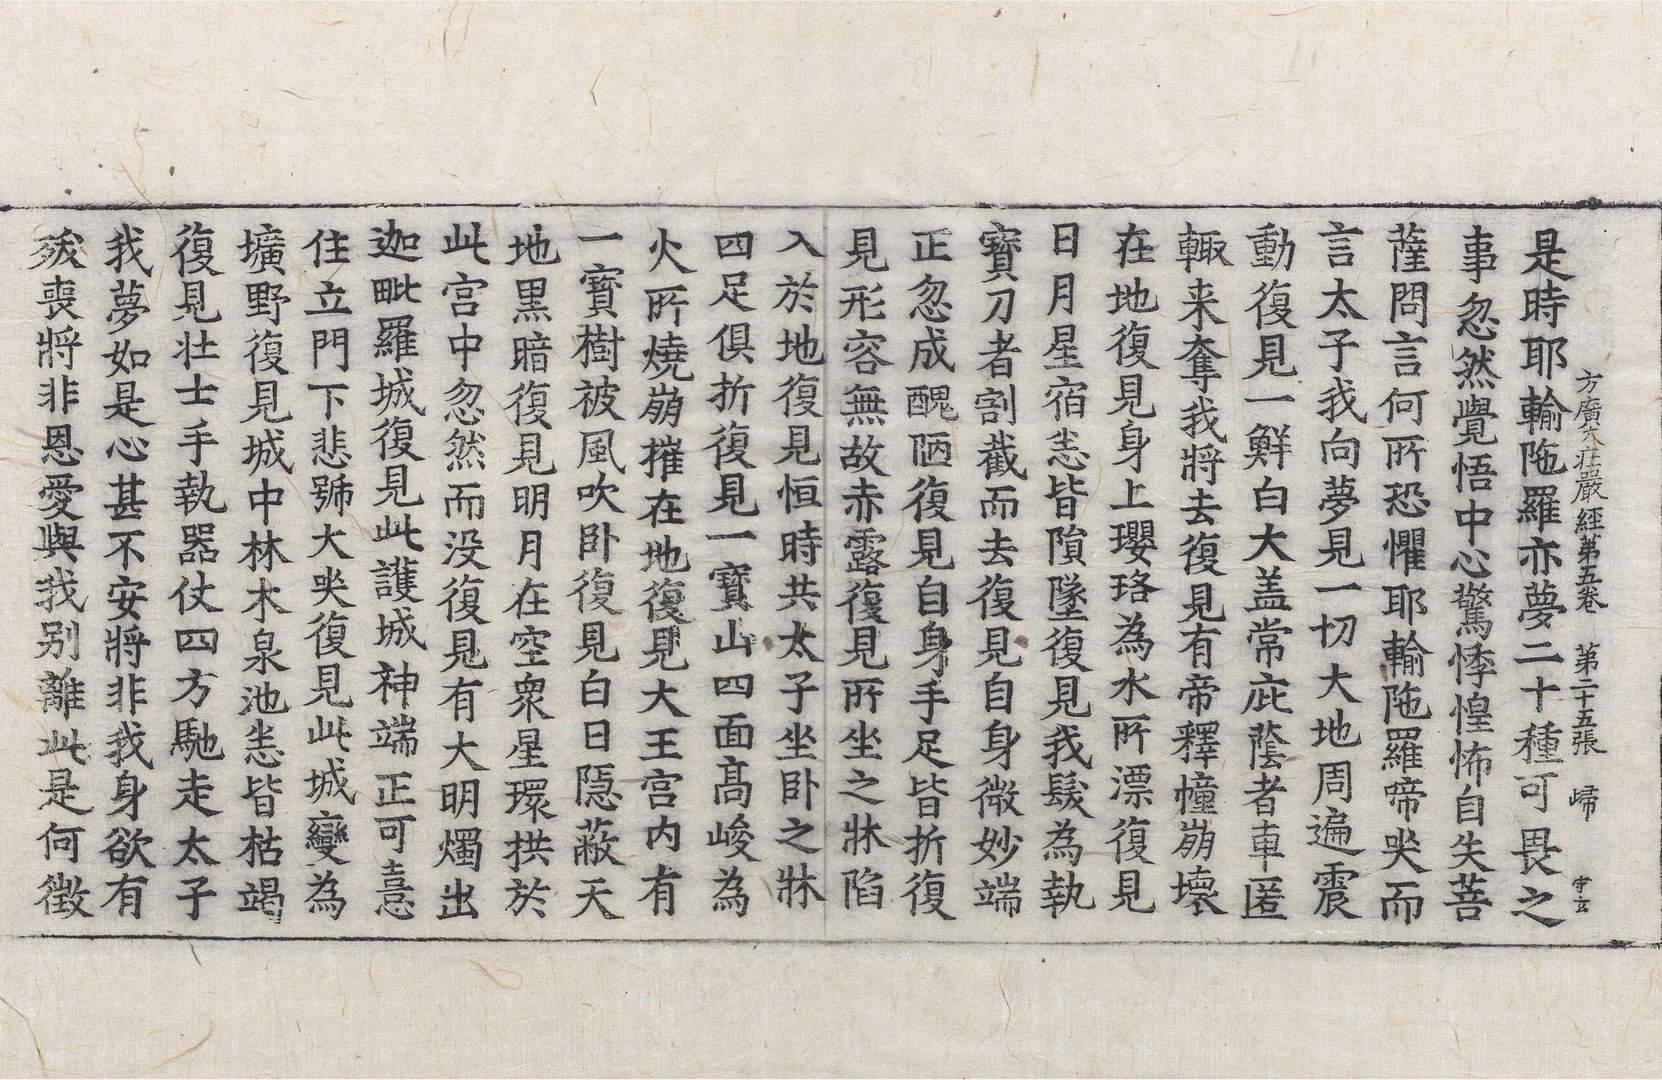 方廣大莊嚴經第五卷 第二十五張 歸
是時耶輸陁羅亦夢二十種可畏之
事忽然覺悟中心驚悸惶怖自失菩
薩問言何所恐懼耶輸陁羅啼哭而
言太子我向夢見一切大地周遍震
動復見一鮮白大盖常庇䕃者車匿
輙来奪我將去復見有帝釋幢崩壞
在地復見身上瓔珞為水所漂復見
日月星宿悉皆隕墜復見我髮為執
寶刀者割截而去復見自身微妙端
正忽成醜陋復見自身手足皆折復
見形容無故赤露復見所坐之牀陷
入於地復見恒時共太子坐卧之牀
四足俱折復見一寶山四面高峻為
火所燒崩摧在地復見大王宫内有
一寶樹被風吹卧復見白日隱蔽天
地黒暗復見明月在空衆星環拱於
此宫中忽然而没復見有大明燭出
迦毗羅城復見此護城神端正可憙
住立門下悲號大哭復見此城變為
壙野復見城中林木泉池悉皆枯竭
復見壯士手執器仗四方馳走太子
我夢如是心甚不安將非我身欲有
殀喪將非恩愛與我别離此是何徵